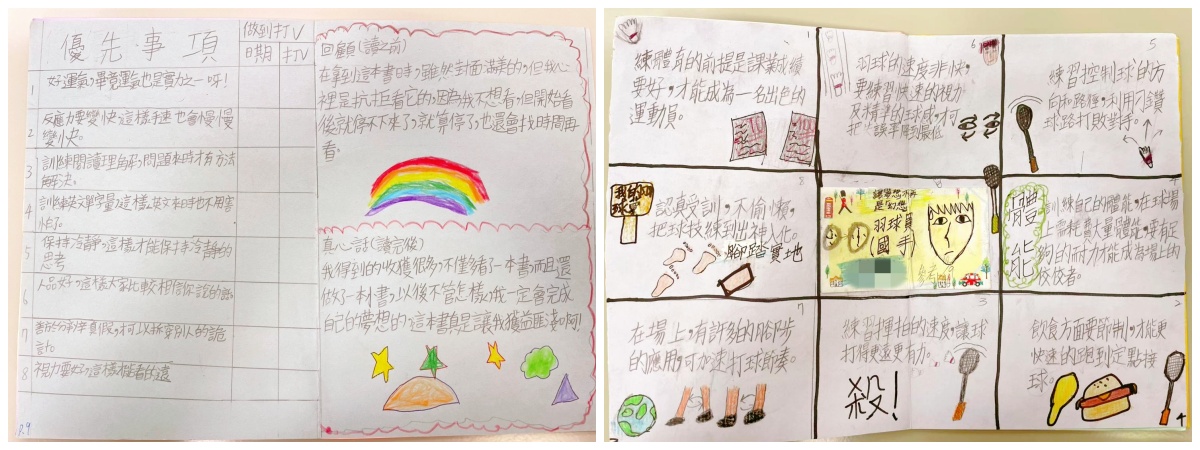 優先事項
做到打V
日期
打V
1
好運氣，畢竟運氣也是實力之一呀！
2
反應力要變快，這樣手速也會慢慢
變快。
3
訓練閱讀理解，問題來時才有方法
解決。
4
訓練英文單字量，這樣英文來時也不用害
怕了。
5
保持冷靜，這樣才能保持冷靜的
思考
6
人品好，這樣大家比較相信你說的話
7
善於分辨真假，才可以拆穿別人的詭
計。
8
視力要好，這樣才能看的遠
P.9
回顧(讀之前)
在拿到這本書時，雖然封面滿美的，但我心
裡是抗拒看它的，因為我不想看，但開始看
後就停不下來了，就算停了，也還會找時間再
看。
真心話(讀完後)
我得到的收獲很多，不僅多看了一本書而且還
做了一本小書，以後不管怎樣，我一定會完成
自己的夢想的，這本書真是讓我獲益匪淺啊！
1
練體育的前提是課業成績
要好，才能成為一名出色的
運動員。
6
羽球的速度非快，
要練習快速的視力
及精準的球感，才可
把失誤率降到最低
5
練習控制球的方
向和路徑，利用刁鑽
球路打敗對手。
8
我的
認真受訓，不偷懶，
把球技練到出神入化。
腳踏實地
讓夢想不再
是幻想
羽球員
(國手)
體能
訓練自己的體能，在球場
上需耗費大量體能，要有足
夠的耐力才能成為場上的
佼佼者。
7
在場上，有許多的腳步
的應用，可加速打球節奏。
3
練習揮拍的速度，讓球
打得更遠更有力。
殺！
2
飲食方面要節制，才能更
快速的跑到定點接
球。
4